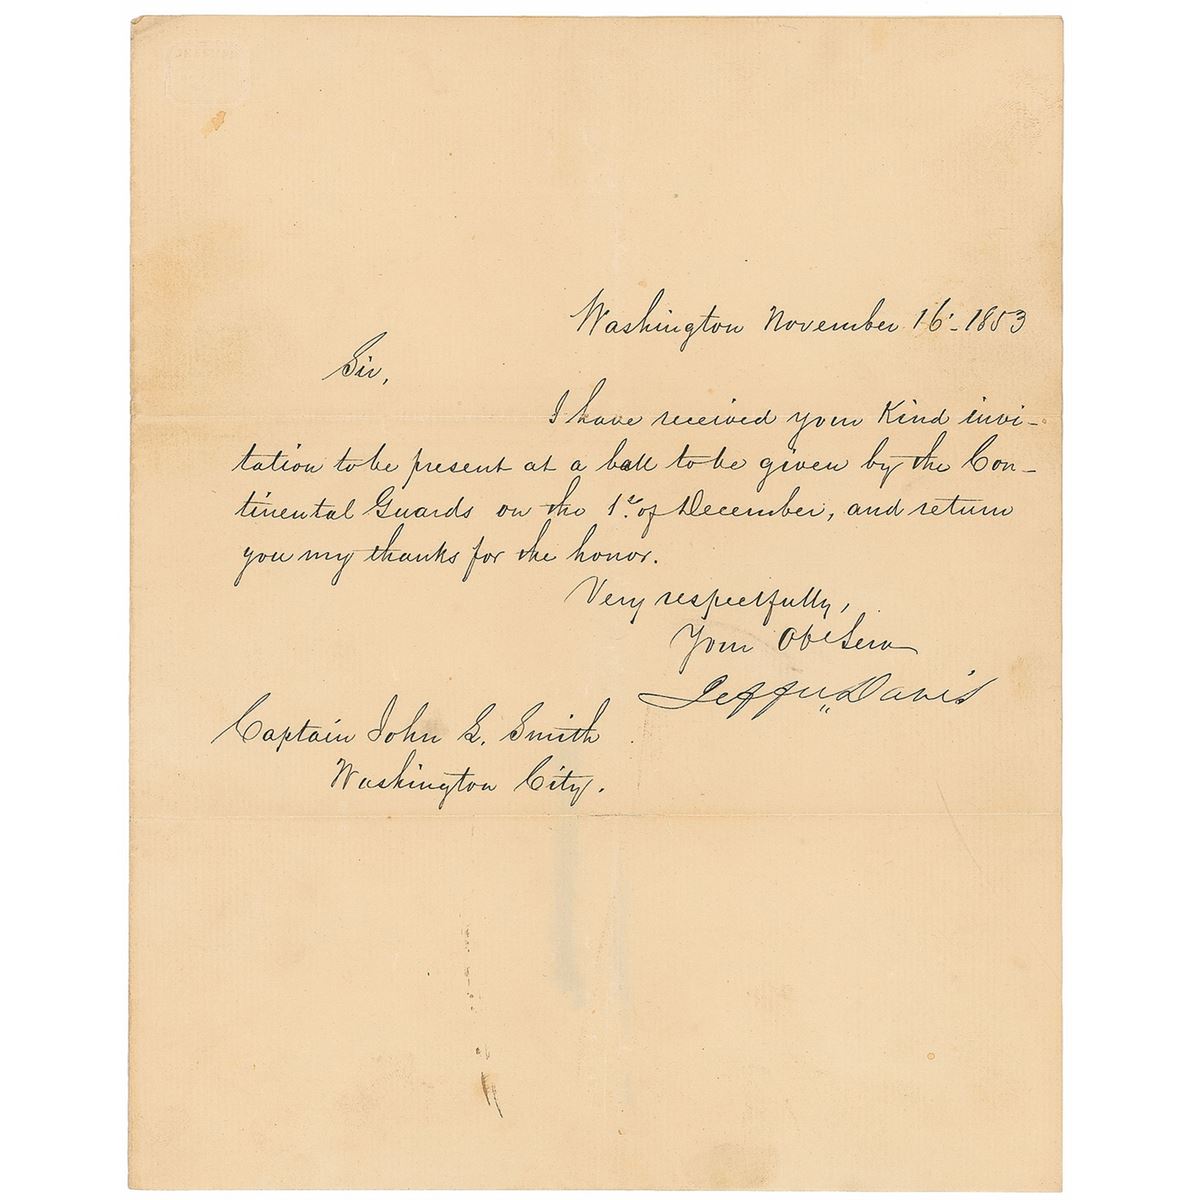 Washington November 16'- 1853
Sir,
I have received your Kind invi-
tation to be present at a ball to be given by the Con-
tinental Guards on the 1st of December, and return
you my thanks for the honor.
Very respectfully,
Your Obt Serv
Jeffn Davis
Captain John G. Smith
Washington City.